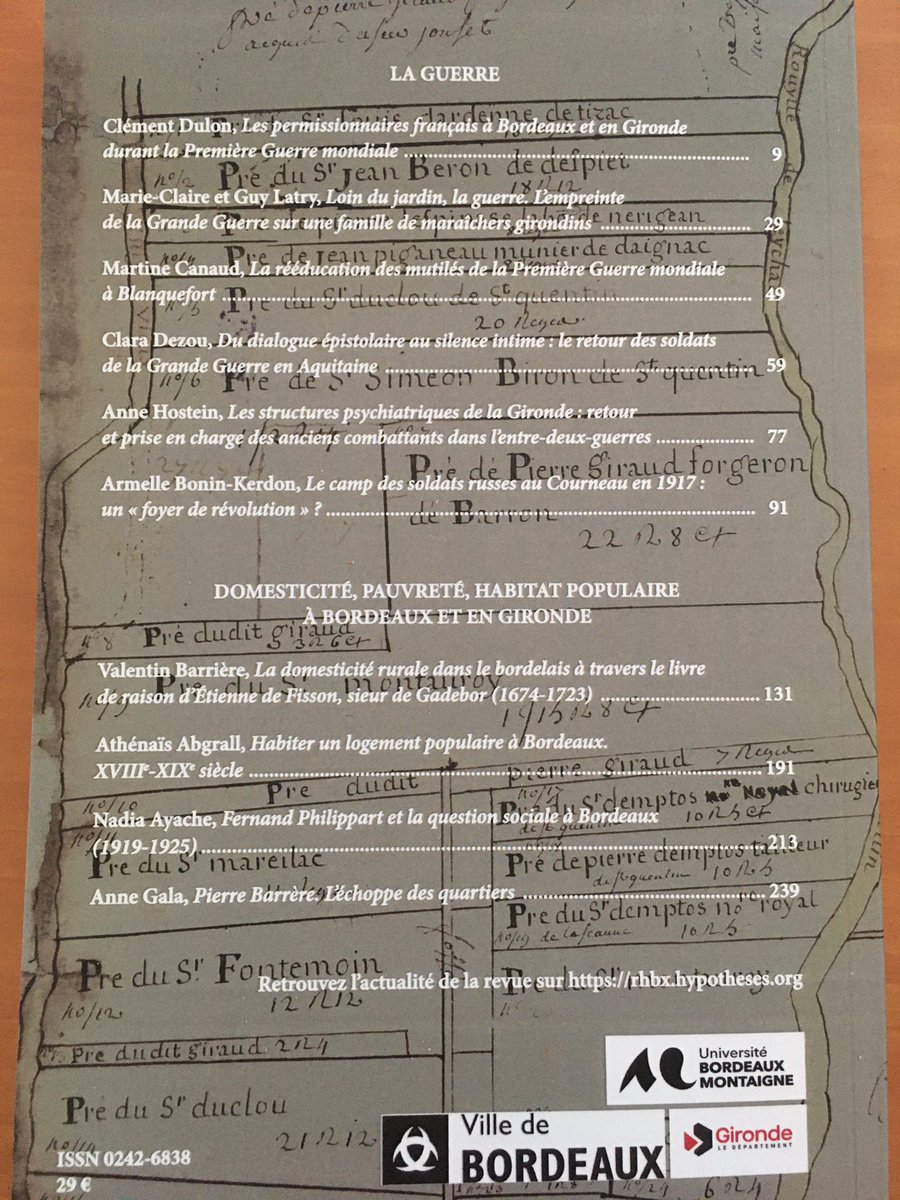 acquid
LA GUERRE
Clément Dulon, Les permissionnaires français à Bordeaux et en Gironde
durant la Première Guerre mondiale 9
Pré du Sr Jean Beron de despiet
Marie-Claire et Guy Latry, Loin du jardin, la guerre. L'empreinte
de la Grande Guerre sur une famille de maraîchers girondins 29
Pre de jean piganeau munier de daignac
Martine Canaud, La rééducation des mutilés de la Première Guerre mondiale
à Blanquefort 49
Pre du Sr duclou de St quentin
Clara Dezou, Du dialogue épistolaire au silence intime : le retour des soldats
de la Grande Guerre en Aquitaine 59
Pré de Sr Simeon Biron de St quentin
Anne Hostein, Les structures psychiatriques de la Gironde : retour
et prise en charge des anciens combattants dans l'entre-deux-guerres 77
Pré de Pierre giraud forgeron
Armelle Bonin-Kerdon, Le camp des soldats russes au Courneau en 1917 :
un « foyer de révolution » ? 91
de Barron
DOMESTICITÉ, PAUVRETÉ, HABITAT POPULAIRE
À BORDEAUX ET EN GIRONDE
Pré dudit giraud
Valentin Barrière, La domesticité rurale dans le bordelais à travers le livre
de raison d'Étienne de Fisson, sieur de Gadebor (1674-1723) 131
Athénaïs Abgrall, Habiter un logement populaire à Bordeaux.
XVIIIe-XIXe siècle 191
Pre dudit pierre giraud
Pre du Sr demptos chirugie
Nadia Ayache, Fernand Philippart et la question sociale à Bordeaux
(1919-1925) 213
Pre du Sr mareilac
Pré de pierre demptos tailleur
Anne Gala, Pierre Barrère. L'échoppe des quartiers 239
Pre du Sr demptos nore royal
Pre du Sr Fontemoin
Retrouvez l'actualité de la revue sur https://rhbx.hypotheses.org
12 R 12
no/12
Pre dudit giraud 2 R 4
Pré du Sr duclou
21 R 12
Université
BORDEAUX
MONTAIGNE
Ville de
BORDEAUX
Gironde
LE DÉPARTEMENT
ISSN 0242-6838
29 €